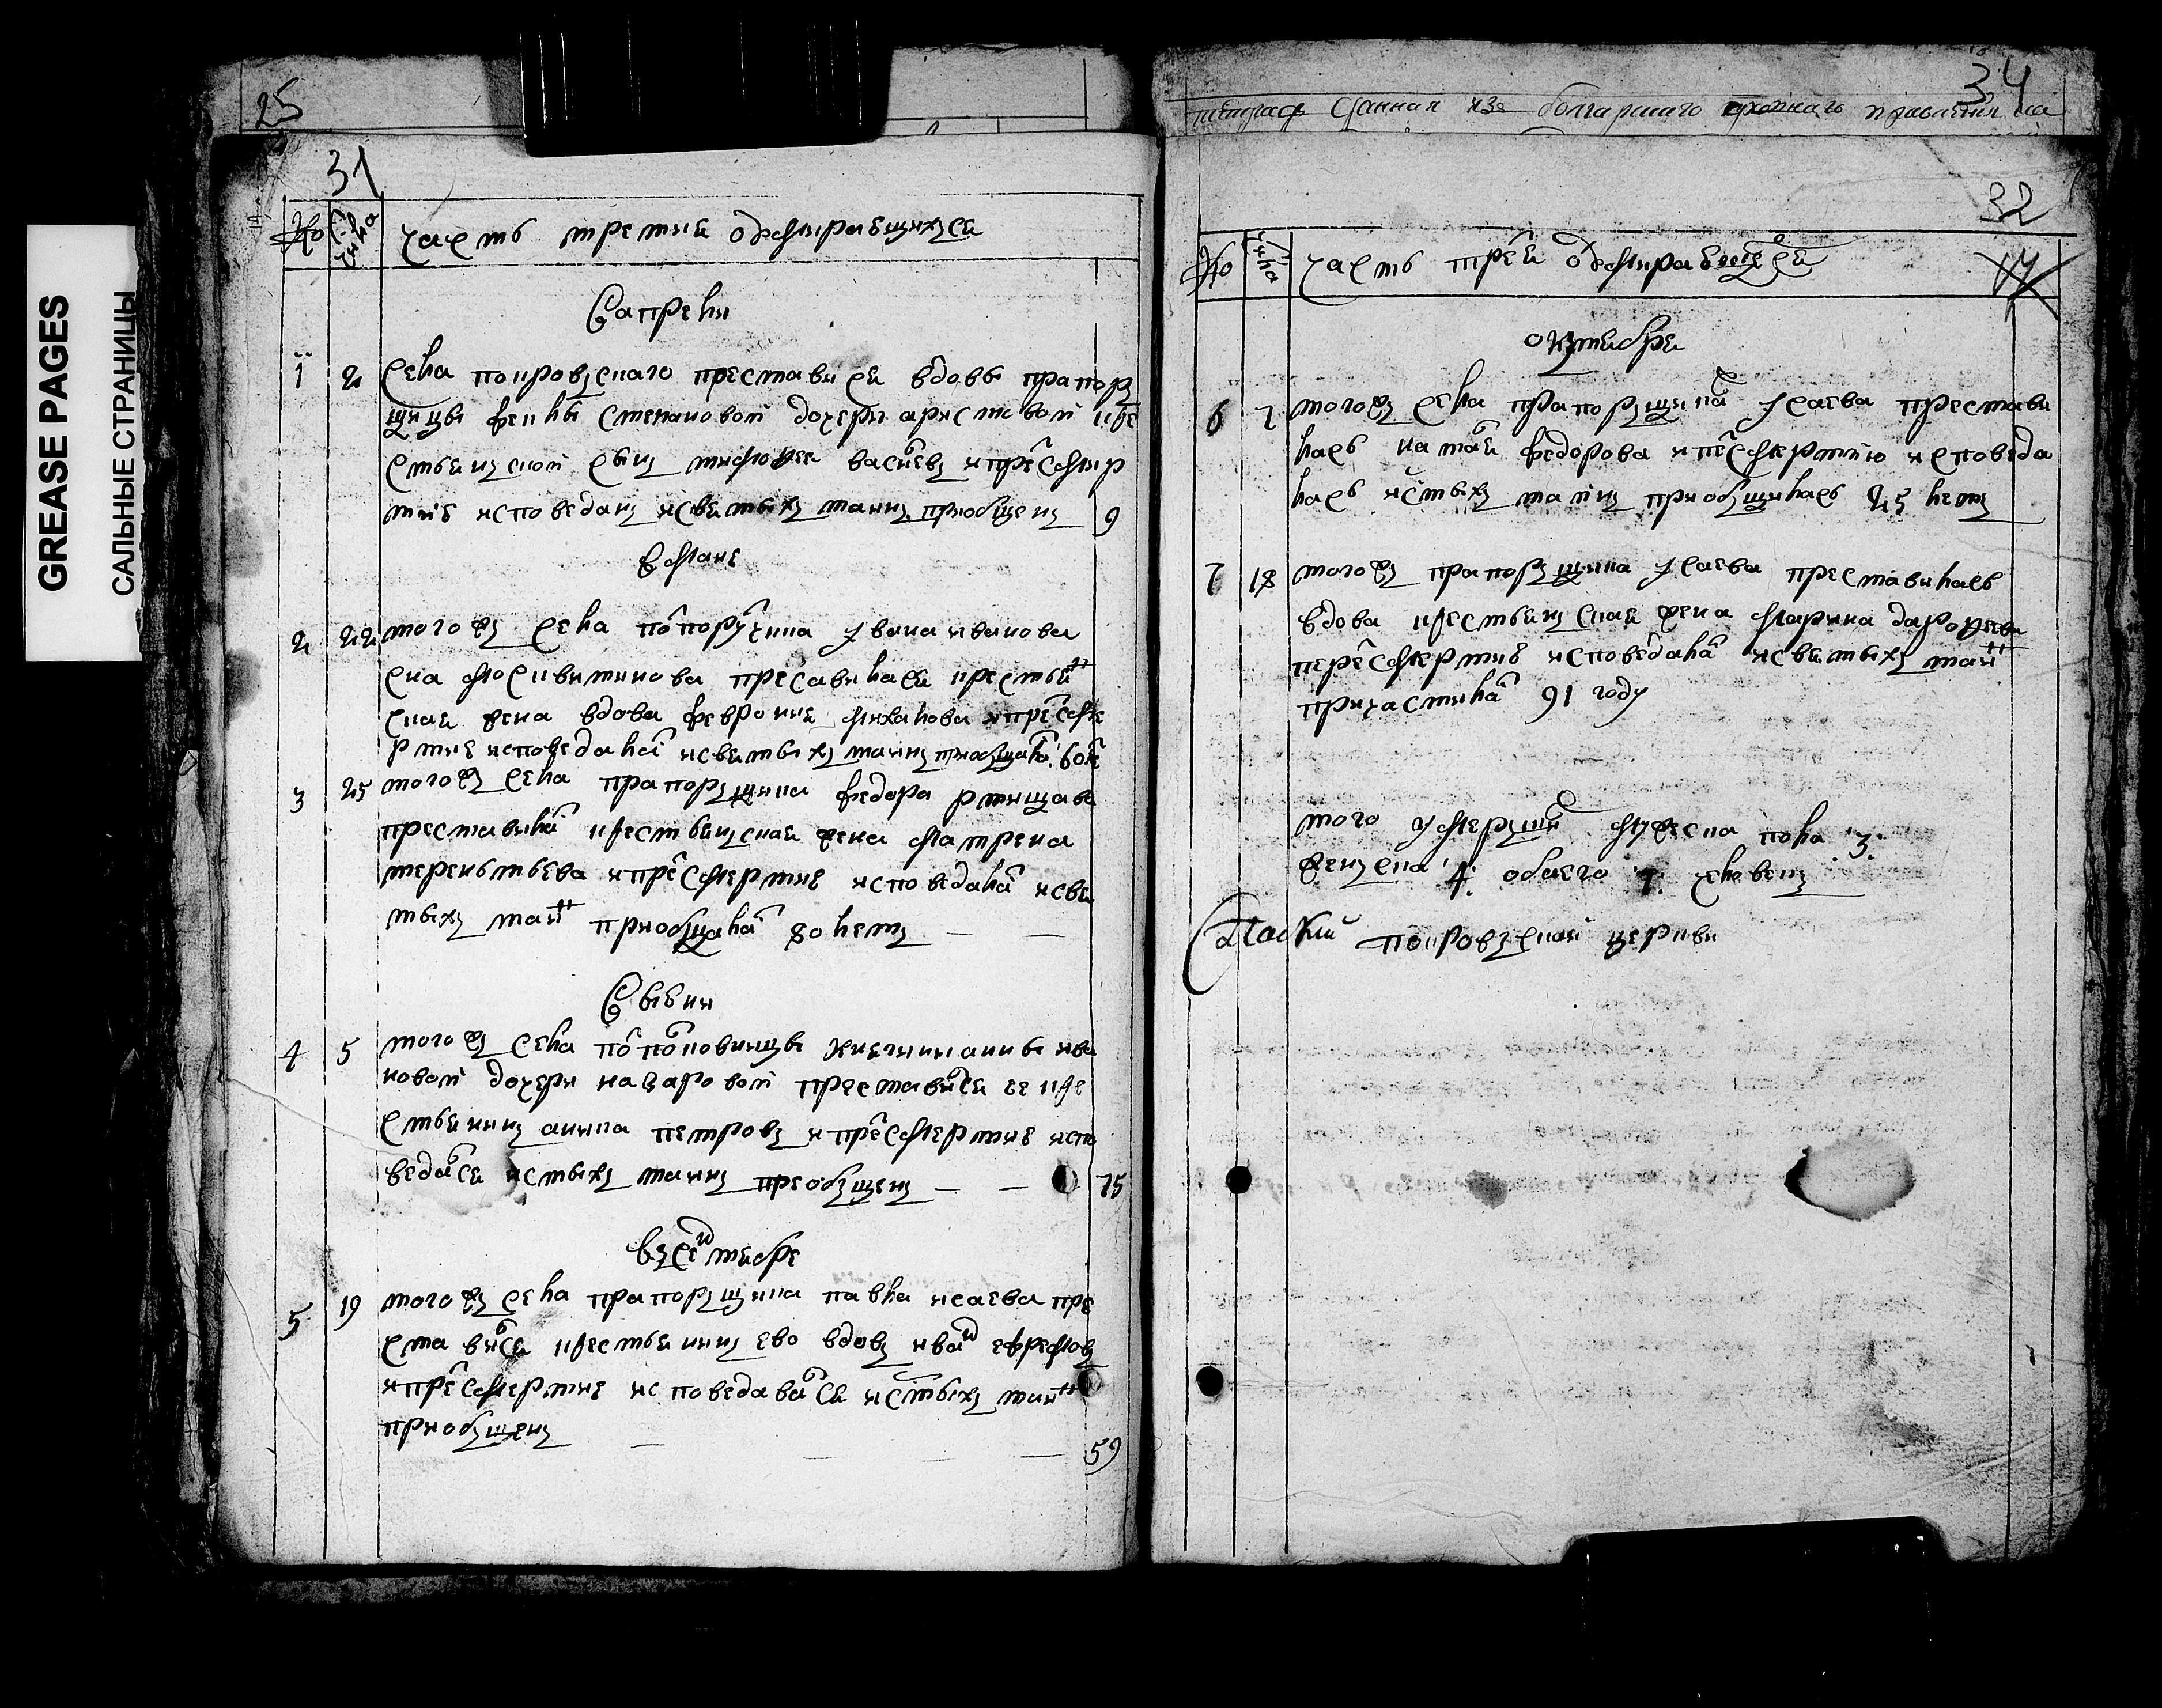 GREASE PAGES
САЛЬНЫЕ СТРАНИЦЫ
25
31
№
числа
часть третия оумирающихся
Вапрели
1
2
села покровскаго преставися вдовы прапор
щицы феклы степановой дочери аристовой кре
стьянской сынъ тимофеи васильевъ ипресмер
тие исповеданъ исвятыхъ таинъ приобщенъ
9
Вмаие
2
22
тогожъ села подпоручика ивана иванова
сна преставилася крестьян
ская жена вдова феврония михаилова ипресме
ртие исповедана исвятыхъ таинъ приобщена 60 ле
3
25
тогожъ села прапорщика федора ртищева
преставилась крестьянская жена матрена
терентьева ипресмертие исповедана исвя
тыхъ таинъ приобщена 80 летъ
Виюни
4
5
тогожъ села подполковницы княгини анны ива
новой дочери назаровой преставился ее кре
стьянинъ аникиа петровъ ипресмертие испо
ведался истыхъ таинъ преобщенъ
75
Въсентябре
5
19
тогожъ села прапорщика павла исаева пре
ставился крестьянинъ ево вдовъ иванъ ефремовъ
ипресмертие исповедавался истыхъ таинъ
приобщенъ
59
34
данная изъ духовнаго правления на
32
17
№
числа
часть третия оумирающихся
октября
6
7
тогожъ села прапорщика исаева престави
лась наталя федорова ипресмертию исповеда
лась истыхъ таинъ приобщилась 25 летъ
7
18
тогожъ прапорщика исаева преставилась
вдова крестьянская жена марина дарофеева
пересмертие исповедана исвятыхъ таинъ
причастилась 91 году
того умерших мужеска пола 3
женъска 4 обоего 7 человекъ
Спаской покровской церкви